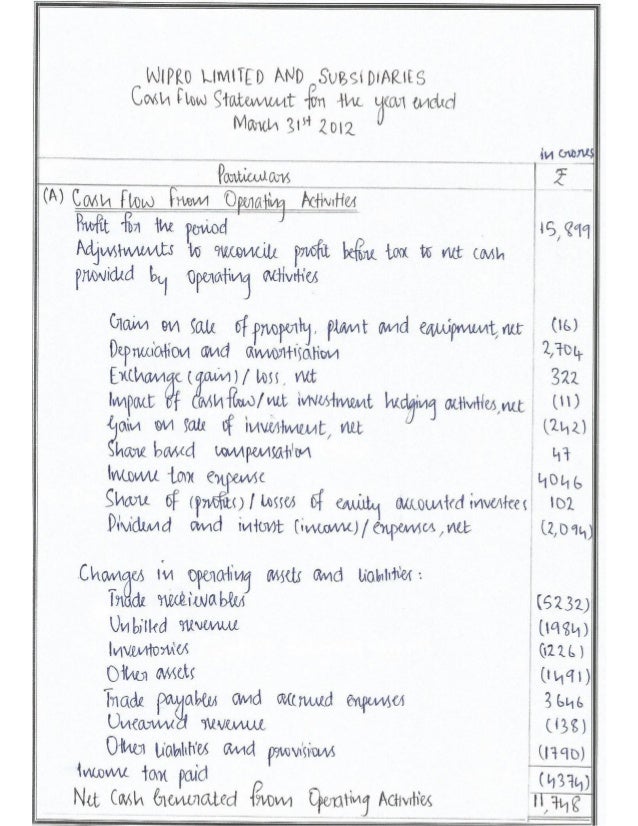 WIPRO LIMITED AND SUBSIDIARIES
Cash Flow Statement for the year ended
March 31st 2012
in crores
Particulars ₹
(A) Cash Flow From Operating Activities
Profit for the period 15,899
Adjustments to reconcile profit before tax to net cash
provided by operating activities
Gain on sale of property, plant and equipment, net (16)
Depreciation and amortisation 2,704
Exchange (gain) / loss, net 322
Impact of cash flow/net investment hedging activities, net (11)
Gain on sale of investment, net (242)
Share based compensation 47
Income tax expense 4046
Share of (profits) / losses of equity accounted investees 102
Dividend and interst (income) / expenses, net (2,094)
Changes in operating assets and liabilities :
Trade receivables (5232)
Unbilled revenue (1984)
Inventories (1226)
Other assets (1491)
Trade payables and accrued expenses 3646
Unearned revenue (138)
Other liabilities and provisions (1790)
Income tax paid (4374)
Net Cash Generated from Operating Activities 11,748